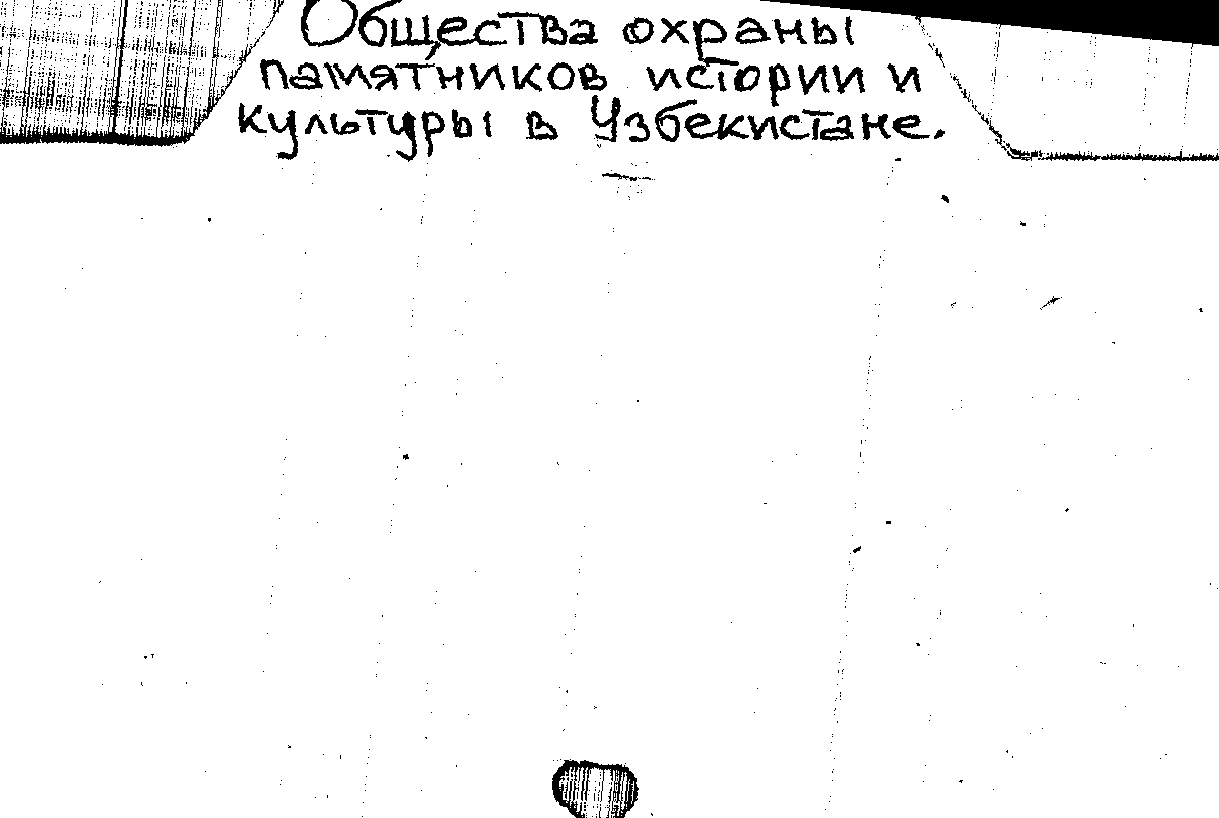 Общества охраны
памятников истории и
культуры в Узбекистане.